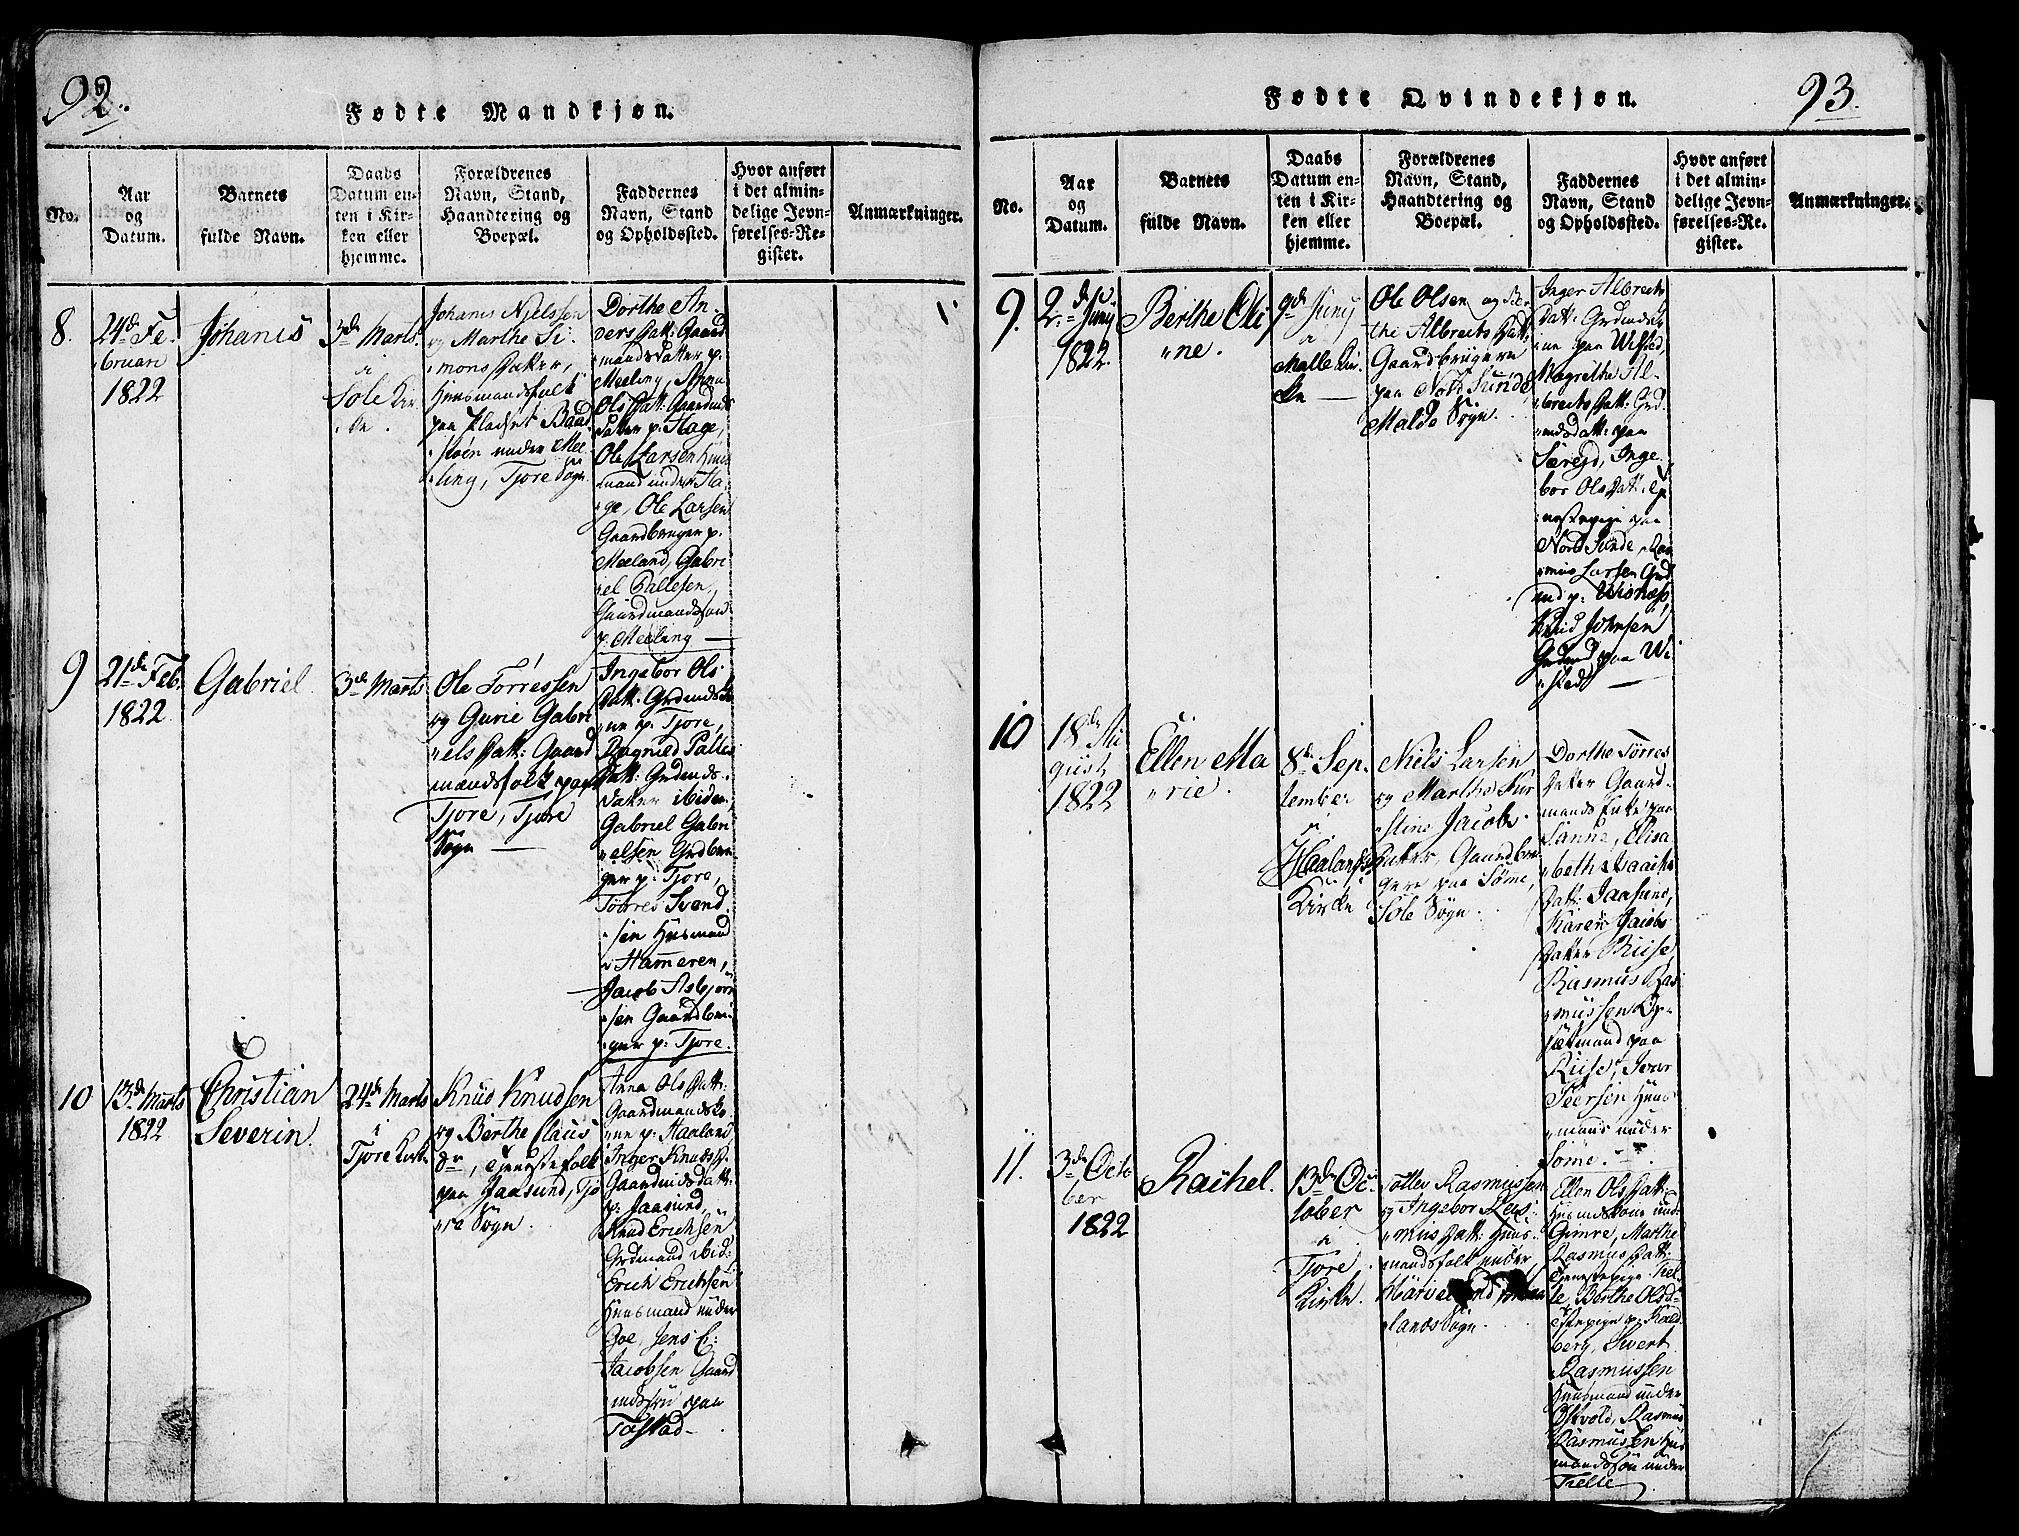 92.
Fødte Mandkjøn.
No.
Aar
og
Datum.
Barnets
fulde Navn.
Daabs
Datum en-
ten i Kir-
ken eller
hjemme.
Forældrenes
Navn, Stand,
Haandtering og
Boepæl.
Faddernes
Navn, Stand
og Opholdssted.
Hvor anført
i det almin-
delige Jevn-
førelses-Re-
gister.
Anmærkninger.
8.
24de Fe-
bruari
1822
Johanis
3de Marts
i
Sole Kir-
ke.
Johanis Nielssen
og Marthe Si-
monsDatter,
Huusmandsfolk
paa Pladset Baad
støen under Mee
ling, Tjore Sogn
Dorthe An
dersDatt: Gaard
mandsdatter p:
Meeling, Anna
OlsDatt: Gaardmds
datter p: Hage,
Ole Larsen Huus
mand under Ha-
ge, Ole Larsen
Gaardbruger p.
Meeland, Gabri
el Pallesen,
Gaardmandssøn
p. Meeling
9
21de Feb.
1822.
Gabriel.
3de Marts
Ole Torressen
og Gurie Gabri
elsDatt: Gaard
mandsfolk paa
Tjore, Tjore
Sogn
Ingebor Ols
Datt: Grdmdsko
ne p: Tjore,
Ragnild Palles
Datt: Grdmds-
datter ibidem,
Gabriel Gabri
elsen Grdbru-
ger p: Tjore,
Torres Svend
sen Husmand
i Hammeren,
Jacob Asbjørn
sen Gaardbru-
ger p: Tjore.
10
13de Marts
1822
Christian
Severin.
24de Marts
i
Tjore Kirke
Knud Knudsen
og Berthe Claus
Dr, Tjenestefolk
paa Jaasund, Tjo
re Sogn
Anna OlsDatt:
Gaardmandsko-
ne p: Haaland,
Inger KnudsD.
Gaardmdsdatt:
p: Jaasund,
Knud Erichsen
Grdmand ibid:
Erich Erichsen
Huusmand under
Goe, Jens E:
Jacobsen Gaard
mdssøn paa
Tastad
93.
Fødte Qvindekjøn.
No.
Aar
og
Datum.
Barnets
fulde Navn.
Daabs
Datum en-
ten i Kir-
ken eller
hjemme.
Forældrenes
Navn, Stand,
Haandtering og
Boepæl.
Faddernes
Navn, Stand
og Opholdssted.
Hvor anført
i det almin-
delige Jevn-
førelses-Re-
gister.
Anmærkninger.
9.
2de Junij
1822.
Berthe Oli
ne.
9de Junij
i
Malle Kir
ke
Ole Olsen og Ber
the AlbreitsDatt:
Gaardbrugere
paa Nord Sunde,
Malde Sogn.
Inger Albreits
Datt: Grdmdsko
ne paa Wistad,
Magrethe Al-
breitsDatt: Grd
mdsdatt: paa
Særejd, Inge
bor OlsDatt: Tje
nestepige paa
Nord Sunde, Ras
mus Larsen Grd
md p: Wisnæss,
Knud Johnsen
Grdmd paa Wi
stad
10
18de Au
gust
1822
Ellen Ma
rie.
8de Sep-
tember
i
Haalands
Kirke
Niels Larsen
og Marthe Kir
stine Jacobs
Datter, Gaardbru
gere paa Sømе,
Sole Sogn.
Dorthe Torres
Datter Gaard-
mands Enke paa
Sanne, Elisa
beth Isaachs
Datt: Jaasund,
Karen Jacobs
Datter Riise,
Rasmus Ras
mussen Op-
sætmand paa
Riise, Iver
Peersen Huus
mand under
Sømе.
11.
3de Octo
ber
1822
Rachel.
13de Oc
tober
i
Tjore
Kirke.
Otter Rasmussen
og Ingebor Ras
musDatt: Huus
mandsfolk under
Harveland,
lands Sogn.
Ellen OlsDatt:
Huusmdskone und:
Gimre, Marthe
RasmusDatt:
Tjenestepige Træl
le, Berthe OlsD:
Tjstepige p: Kold
berg, Sivert
Rasmussen
Huusmand under
Østvold, Rasmus
Rasmussen Huus
mandssøn under
Trelle